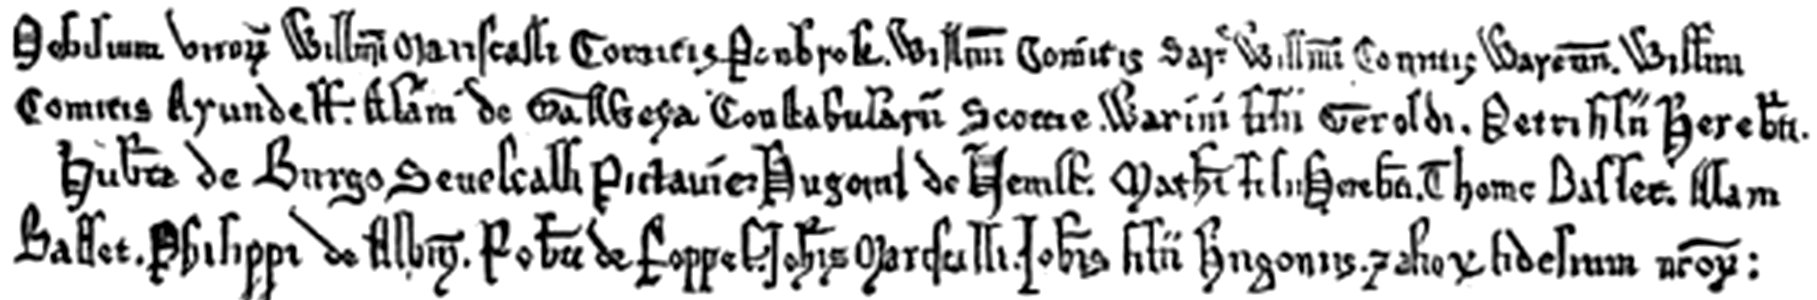 Nobilium viroꝝ Willm̄i Mariscalli Comitis Penbrok. Willm̄i Comitis Sarʳ Willm̄i Comitis Warenn̄. Willm̄i
Comitis Arundell. Alani de Galweya Constabularii Scottie. Warini filii Geroldi. Petri filii Herebt̄i.
Hubt̄i de Burgo Senescalli Pictavie. Hugonis de Nevill. Mathi filii Herebt̄i. Thome Basset. Alani
Basset. Philippi de Albiñ. Robt̄i de Roppel. Joh̄is Marscalli. Joh̄is filii Hugonis. ⁊ alioꝝ fidelium nr̄oꝝ: